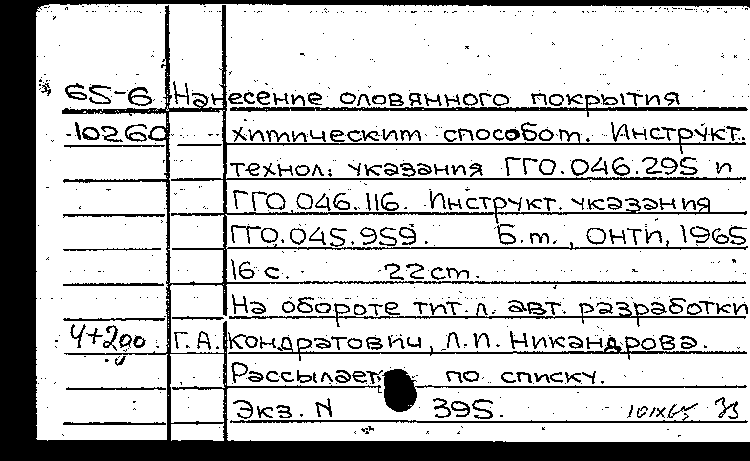 65-6 Нанесение оловянного покрытия
10260 химическим способом. Инструкт.
технол. указания ГГО.046.295 и
ГГО.046.116. Инструкт. указания
ГГО.045.959. Б.м., ОНТИ, 1965
16 с. 22 см.
На обороте тит.л. авт. разработки
4+2до Г.А. Кондратович, Л.П. Никандрова.
Рассылает по списку.
Экз. N 395.